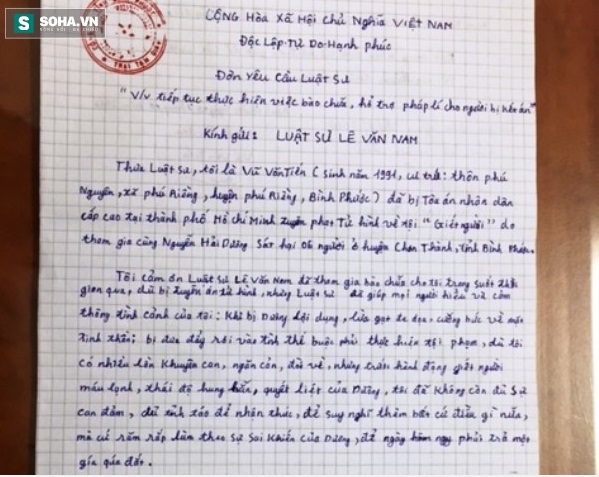 SOHA.VN
CỘNG HÒA XÃ HỘI CHỦ NGHĨA VIỆT NAM
Độc Lập-Tự Do-Hạnh phúc
Đơn Yêu Cầu Luật Sư
"V/v tiếp tục thực hiện việc bào chữa, hỗ trợ pháp lí cho người bị kết án"
Kính gửi: LUẬT SƯ LÊ VĂN NAM
Thưa Luật sư, tôi là Vũ Văn Tiến (sinh năm 1991, cư trú: thôn phú
Nguyên, xã phú Riềng, huyện phú Riềng, Bình Phước) đã bị Tòa án nhân dân
cấp cao tại thành phố Hồ Chí Minh tuyên phạt Tử hình về tội "Giết người" do
tham gia cùng Nguyễn Hải Dương Sát hại 06 người ở huyện Chơn Thành, tỉnh Bình Phước.
Tôi cảm ơn Luật sư Lê Văn Nam đã tham gia bào chữa cho tôi trong suốt thời
gian qua, dù bị tuyên án tử hình, nhưng Luật sư đã giúp mọi người hiểu và cảm
thông tình cảnh của tôi: Khi bị Dương lợi dụng, lừa gạt đe dọa, cưỡng bức về mặt
tinh thần; bị đưa đẩy rơi vào tình thế buộc phải thực hiện tội phạm, dù tôi
có nhiều lần khuyên can, ngăn cản, đi về, nhưng trước hành động giết người
máu lạnh, thái độ hung hãn, quyết liệt của Dương, tôi đã không còn đủ sự
can đảm, đủ tỉnh táo để nhận thức, để suy nghĩ thêm bất cứ điều gì nữa,
mà cứ răm rắp làm theo sự sai khiến của Dương, để ngày hôm nay phải trả một
giá quá đắt.